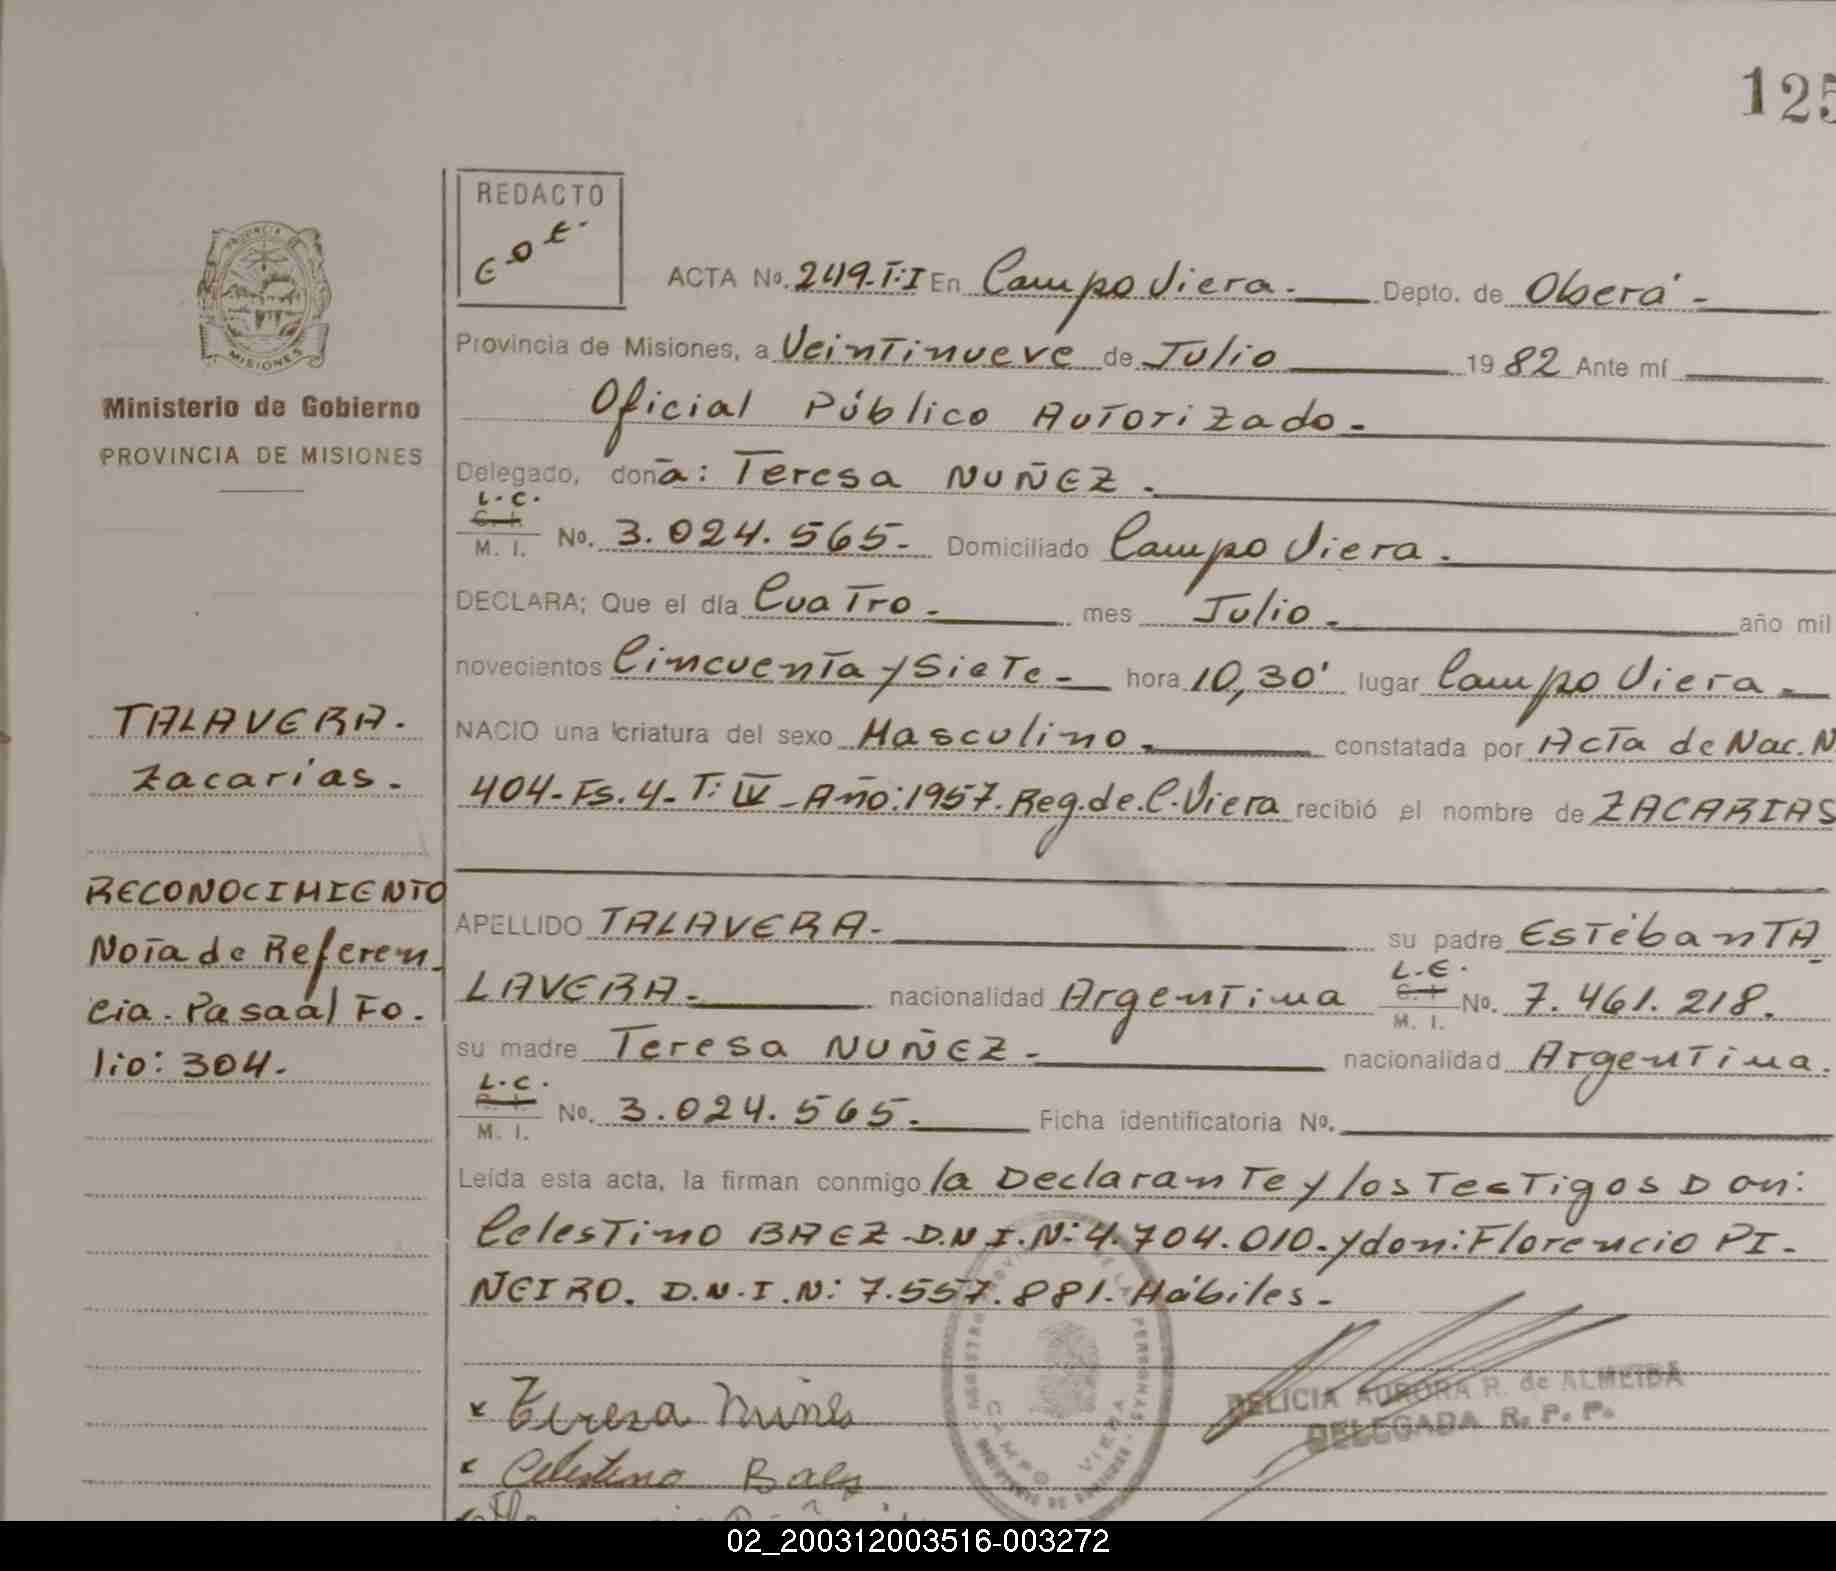 125
REDACTO
PROVINCIA DE
MISIONES
Ministerio de Gobierno
PROVINCIA DE MISIONES
ACTA No. 249-T:I En Campo Viera.- Depto. de Oberá -
Provincia de Misiones, a Veintinueve de Julio 1982 Ante mí
Oficial Público Autorizado.-
Delegado, doña: Teresa NUÑEZ.-
L.C.
C. I.
M. I. No. 3.024.565.- Domiciliado Campo Viera.
DECLARA; Que el día Cuatro.- mes Julio.- año mil
novecientos Cincuenta y Siete.- hora 10,30' lugar Campo Viera.-
NACIO una criatura del sexo Masculino.- constatada por Acta de Nac. N
404-Fs.4-T:IV-Año:1957.Reg.de.C.Viera recibió el nombre de ZACARIAS
APELLIDO TALAVERA.- su padre Estéban TA
LAVERA.- nacionalidad Argentina L.E. C. I. M. I. No. 7.461.218.
su madre Teresa NUÑEZ.- nacionalidad Argentina.
L.C.
C. I.
M. I. No. 3.024.565.- Ficha identificatoria No.
Leída esta acta, la firman conmigo la Declarante y los Testigos Don:
Celestino BAEZ-D.N.I.N:4.704.010.-y don:Florencio PI-
ÑEIRO. D.N.I.N: 7.557.881. Hábiles.-
TALAVERA.
Zacarias.-
RECONOCIMIENTO
Nota de Referen-
cia.-Pasa al Fo-
lio: 304.-
Celestino Baez
CAMPO VIERA
DELICIA AURORA R. de ALMEIDA
DELEGADA R. P. P.
02_200312003516-003272